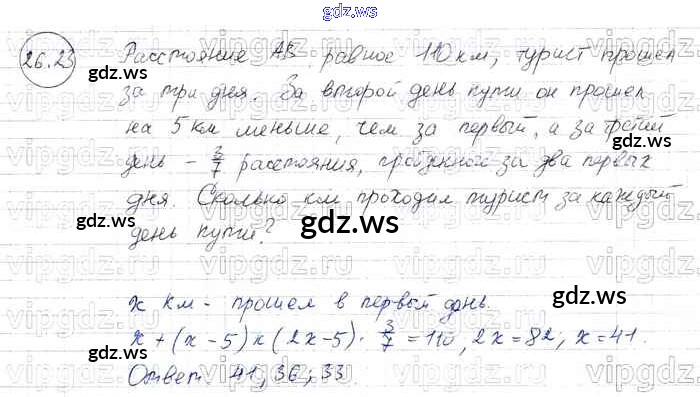 gdz.ws
26.23 Расстояние АВ равное 110 км, турист прошел
за три дня. За второй день пути он прошел
на 5 км меньше, чем за первый, а за третий
день - 3/7 расстояния, пройденного за два первых
дня. Сколько км проходил турист за каждый
день пути?
gdz.ws
gdz.ws
х км - прошел в первый день.
х + (х - 5) + (2х - 5) · 3/7 = 110, 2х = 82; х = 41.
Ответ 41; 36; 33.
gdz.ws
gdz.ws
gdz.ws